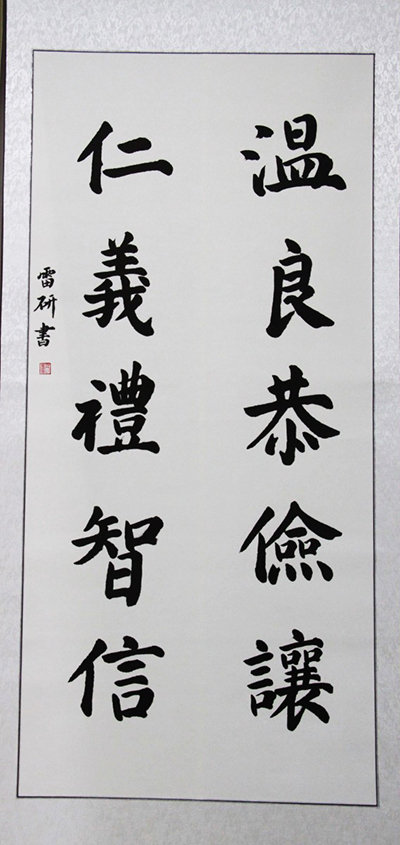 温良恭儉讓
仁義禮智信
雷研書